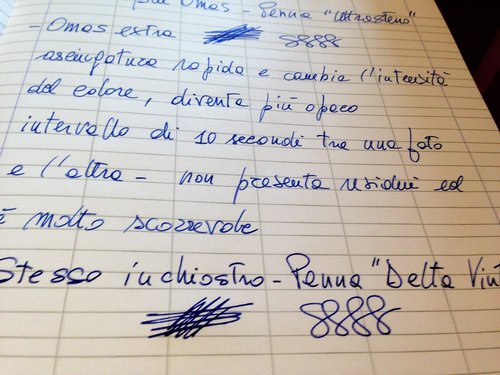 Omas - Penna "Ultrasteno"
- Omas extra 8888
asciugatura rapida e cambia l'intensità
del colore, diventa più opaco
intervallo di 10 secondi tra una foto
e l'altra - non presenta residui ed
è molto scorrevole
Stesso inchiostro - Penna "Delta Vint
8888